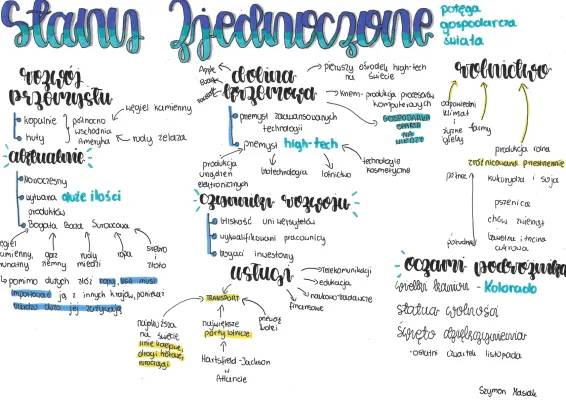 Stany Zjednoczone
potęga
gospodarcza
świata
rozwój
przemysłu
kopalnie
huty
północno
wschodnia
Ameryka
węgiel kamienny
rudy żelaza
aktualnie
nowoczesny
wytwarza duże ilości
produktów
Bogata Baza Surowcowa
węgiel
kamienny,
brunatny
gaz
ziemny
rudy
miedzi
ropa
srebro
i
złoto
pomimo dużych złóż ropy, USA musi
importować ją z innych krajów, ponieważ
bardzo dużo jej zużywają
dolina
krzemowa
Apple
pierwszy ośrodek high-tech
na świecie
krzem - produkcja procesorów
komputerowych
GOSPODARKA
OPARTA
NA
WIEDZY
przemysł zaawansowanych
technologii
przemysł high-tech
produkcja
urządzeń
elektronicznych
biotechnologia
lotnictwo
technologie
kosmetyczne
czynniki rozwoju
bliskość uniwersytetów
wykwalifikowani pracownicy
bogaci inwestorzy
usługi
telekomunikacji
edukacja
naukowo-badawcze
finansowe
TRANSPORT
najdłuższa
na świecie
linie kolejowe,
drogi kołowe,
rurociągi
największe
porty lotnicze
przewóz
kolei
Hartsfield-Jackson
w
Atlancie
rolnictwo
odpowiedni
klimat
i
żyzne
gleby
farmy
produkcja rolna
zróżnicowana przestrzennie
północ
kukurydza i soja
pszenica
chów zwierząt
południe
bawełna i trzcina
cukrowa
oczami podróżnika
wielki kanion Kolorado
statua wolności
święto dziękczynienia
ostatni czwartek listopada
Szymon Masiak